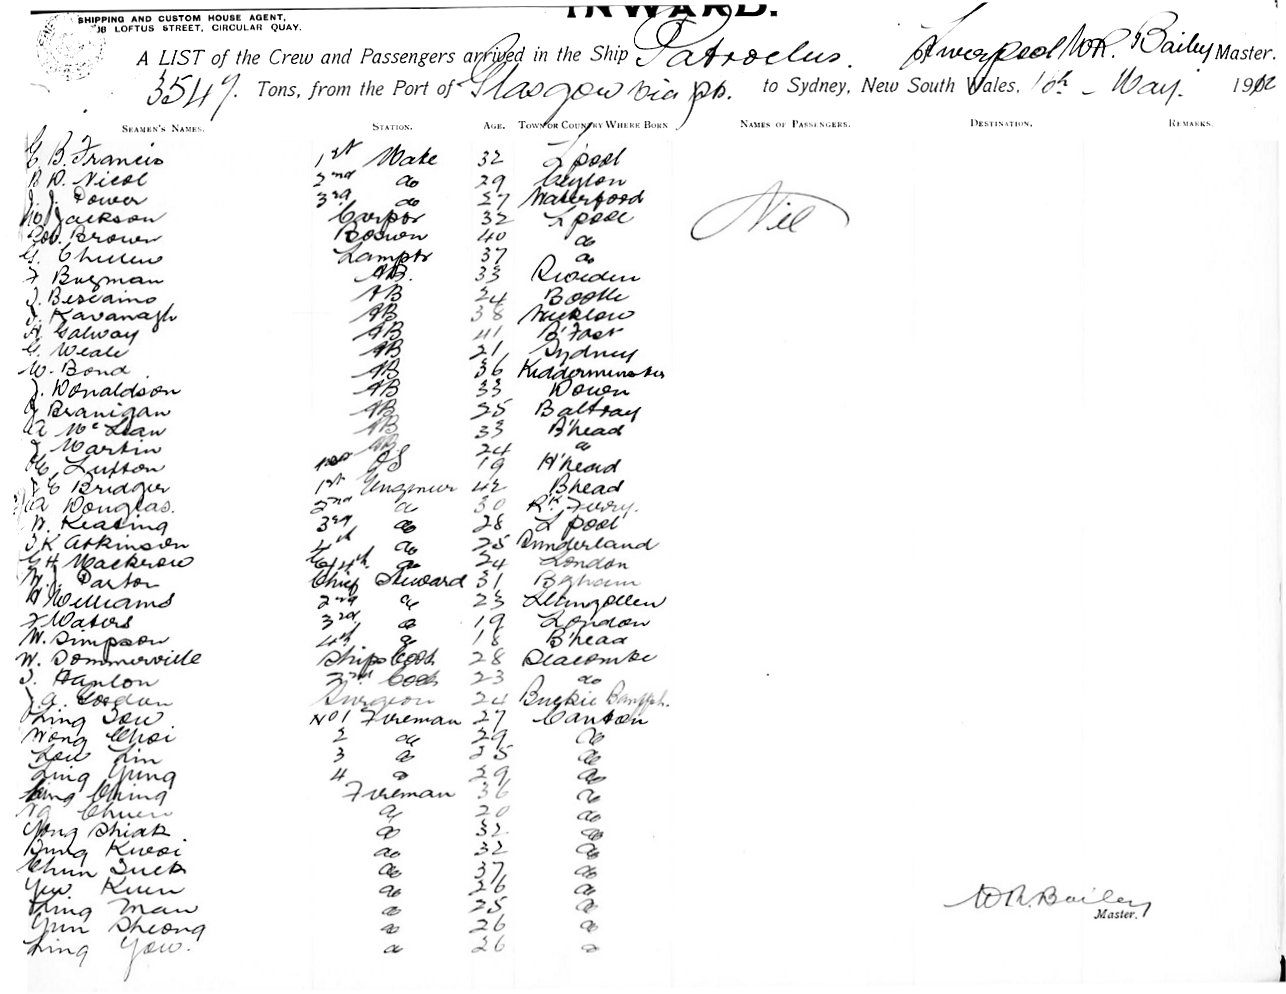 INWARD.
SHIPPING AND CUSTOM HOUSE AGENT,
LOFTUS STREET, CIRCULAR QUAY.
A LIST of the Crew and Passengers arrived in the Ship Patroclus. Liverpool W.R. Bailey Master.
3547. Tons, from the Port of Glasgow via to Sydney, New South Wales, 10th May. 1902
SEAMEN'S NAMES. STATION. AGE. TOWN OR COUNTRY WHERE BORN NAMES OF PASSENGERS. DESTINATION. REMARKS.
B. Francis 1st Mate 32 L'pool
Nicol 2nd do 29 Ceylon
J. J. Power 3rd do 27 Waterford
Jackson Carptr 32 L'pool
Nil
Brown Boswn 40 do
Lamptr 37 do
AB. 33 Sweeden
AB 24 Bootle
J. Kavanagh AB 38 Wicklow
Galway AB 41 B'fast
G. Weale AB 21 Sydney
W. Bond AB 36 Kidderminster
J. Donaldson AB 33 Down
Branigan AB 25 Baltray
A McLean AB 33 B'head
J Martin AB 24 do
Lufton OS 19 H'head
Bridger 1st Engineer 42 Bhead
A Douglas. 2nd do 30 Rk Ferry.
W. Keating 3rd do 28 L'pool
Atkinson 4th do 25 Sunderland
G H Mackrow do 24 London
W. J. Parton Chief Steward 31 B'gham
Williams 2nd do 23 Llangollen
F Waters 3rd do 19 London
W. Simpson 4th do 18 B'head
W. Sommerville Ships Cook 28 Seacombe
Hanlon 2nd Cook 23 do
J A. Gordon Surgeon 24 Buckie Banffsh.
No 1 Fireman 27 Canton
Wong Choi 2 do 29 do
Low Lin 3 do 25 do
Ling Yung 4 do 29 do
Ching Fireman 36 do
Ng do 20 do
do 32 do
Kwoi do 32 do
Chun do 37 do
Yew Kuen do 26 do
W.R. Bailey
Ling Man do 25 do
Master.
Sheong do 26 do
Ling Yow. do 26 do